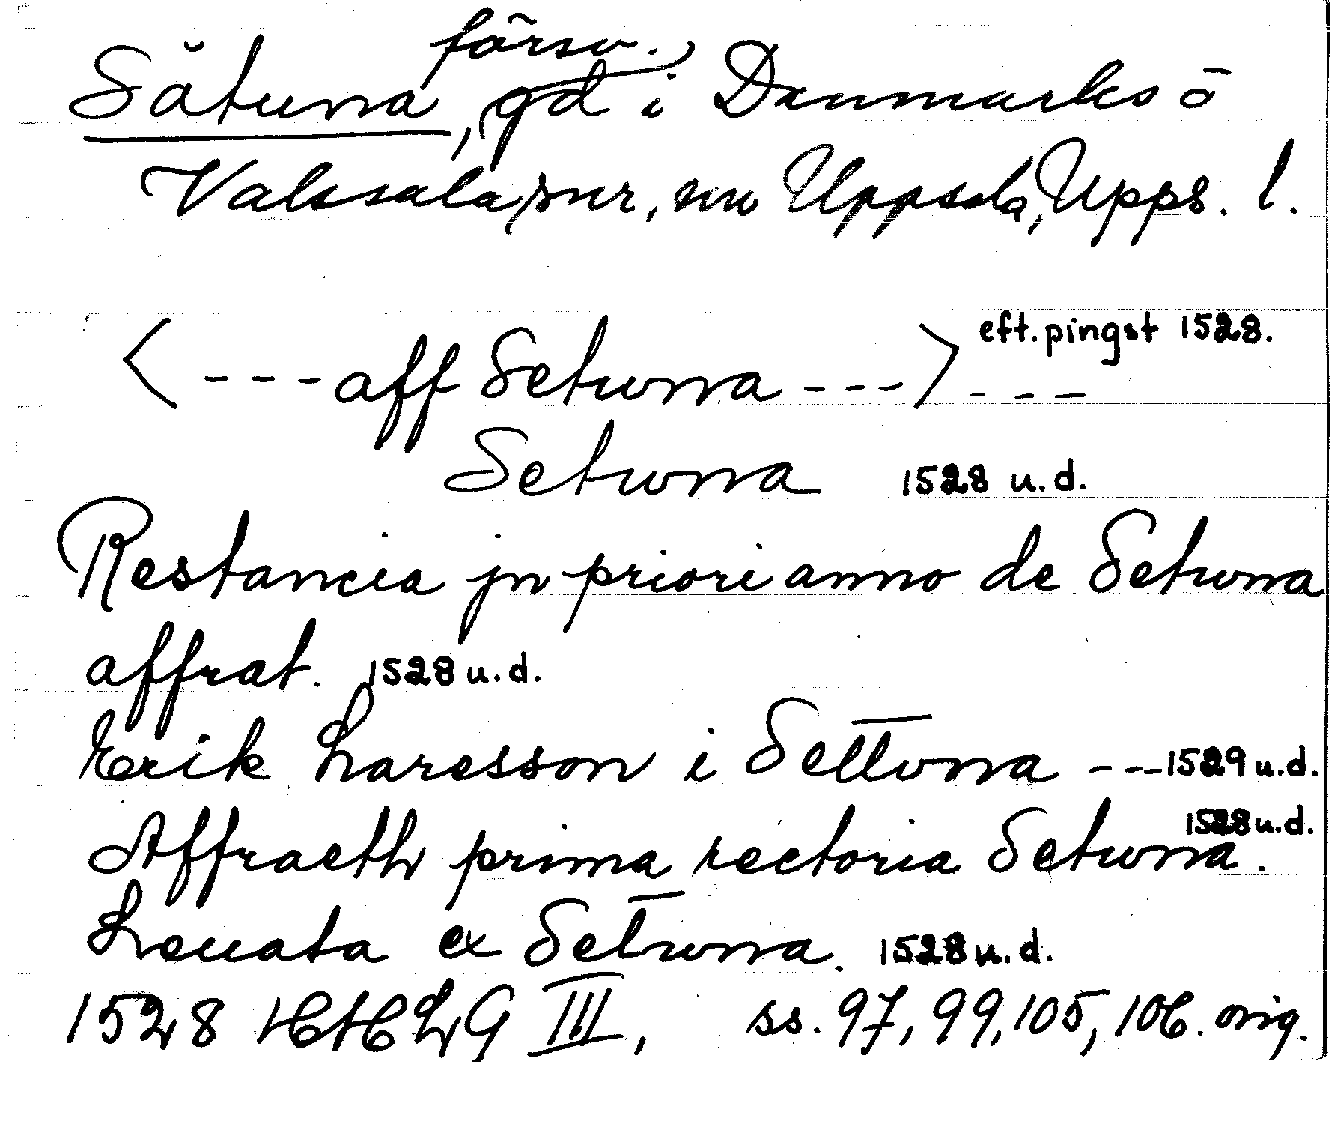 försv.
Såtuna, gd i Danmarks o
Vaksala snr, nu Uppsala, Upps. l.
<---aff Setuna ---> eft. pingst 1528.
---
Setuna 1528 u.d.
Restancia jn priori anno de Setuna
affrat. 1528 u.d.
Erik Laresson i Settuna ---1529 u.d.
1528 u.d.
Affraeth prima rectoria Setuna.
Leuata ex Setuna. 1528 u.d.
1528 HH LG III, ss. 97, 99, 105, 106. orig.